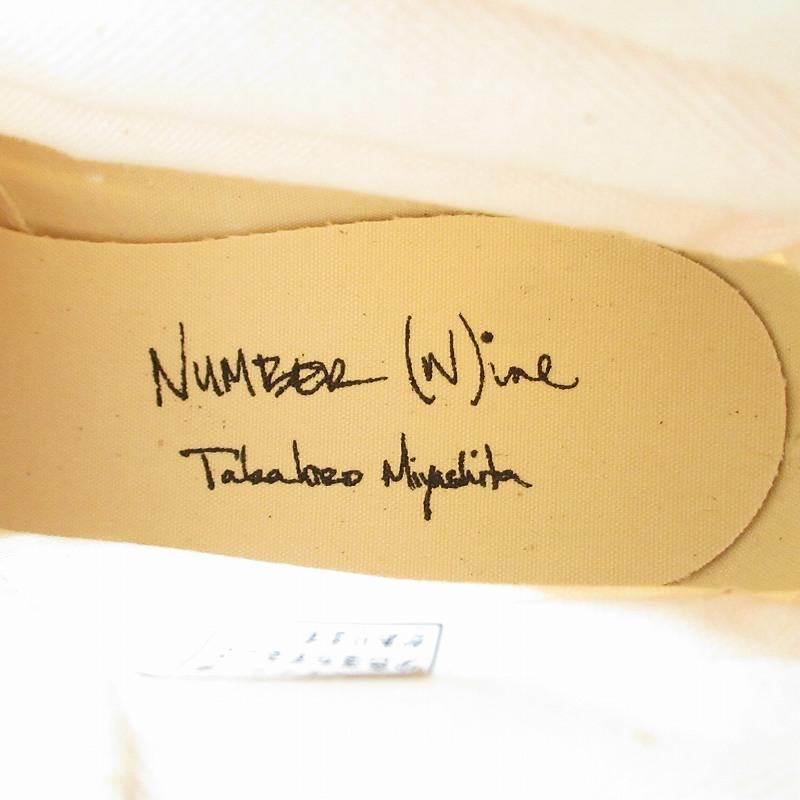 NUMBER (N)ine
Takahiro Miyashita